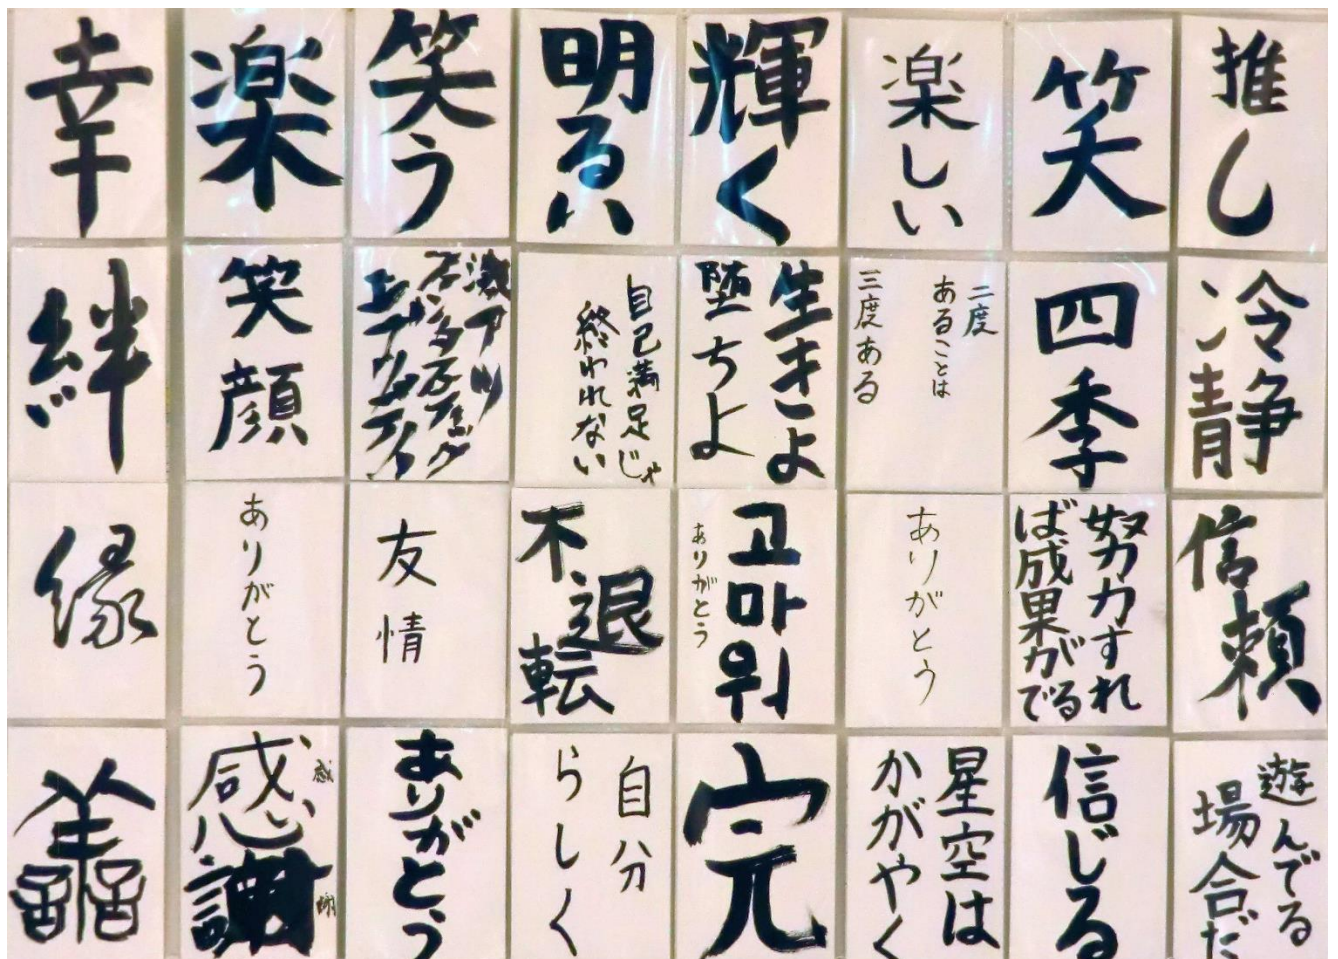 幸
楽
笑う
明るい
輝く
楽しい
笑
推し
絆
笑顔
激アツ
ファンタスティック
エブリデイ
自己満足じゃ
終われない
生きよ
堕ちよ
二度
あることは
三度ある
四季
冷静
縁
ありがとう
友情
不退転
고마워
ありがとう
ありがとう
努力すれ
ば成果がでる
信頼
善
感謝
感謝
ありがとう
自分
らしく
完
星空は
かがやく
信じる
遊んでる
場合だ